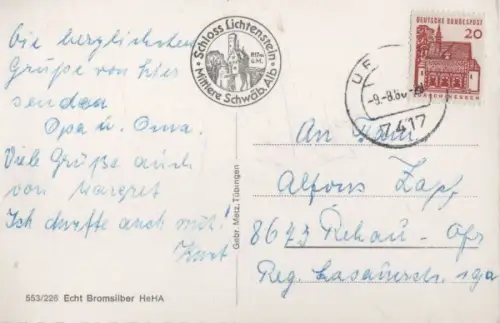 Die herzlichsten
Grüße von hier
senden
Opa u. Oma.
Viele Grüße auch
von Margret
Ich durfte auch mit!
Kurt
553/226 Echt Bromsilber HeHA
Schloss Lichtenstein
Mittlere Schwäb. Alb
Gebr. Metz, Tübingen
DEUTSCHE BUNDESPOST
20
LORSCH HESSEN
-9.-8.66
7417
An Fam.
Alfons Zapf
8673 Rehau - Ofr
Reg.